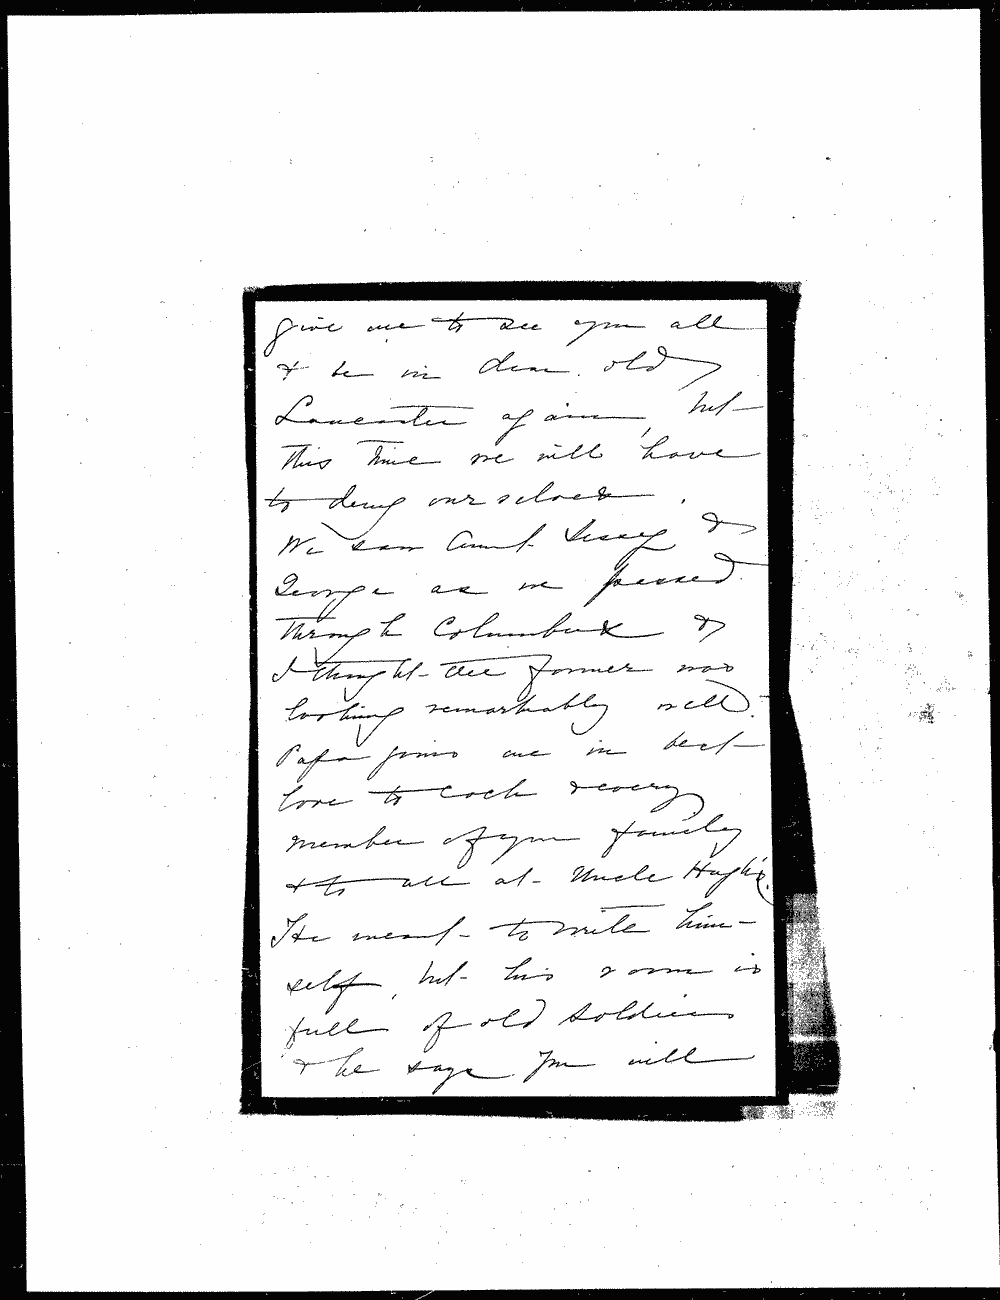 give me to see you all
& be in dear old
Lancaster again, but
this time we will have
to deny ourselves.
We saw Aunt Sissey &
George as we passed
through Columbus &
I thought the former was
looking remarkably well.
Papa joins me in best
love to each & every
member of your family
& to all at Uncle Hugh's.
He meant to write him-
self, but his room is
full of old soldiers
& he says you will